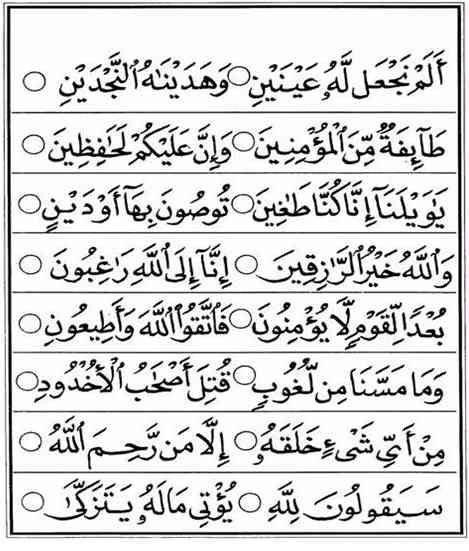 أَلَمْ نَجْعَل لَّهُۥ عَيْنَيْنِ ○ وَهَدَيْنَٰهُ ٱلنَّجْدَيْنِ ○
طَآئِفَةٌ مِّنَ ٱلْمُؤْمِنِينَ ○ وَإِنَّ عَلَيْكُمْ لَحَٰفِظِينَ ○
يَٰوَيْلَنَآ إِنَّا كُنَّا طَٰغِينَ ○ تُوصُونَ بِهَآ أَوْ دَيْنٍ ○
وَٱللَّهُ خَيْرُ ٱلرَّٰزِقِينَ ○ إِنَّآ إِلَى ٱللَّهِ رَٰغِبُونَ ○
بُعْدًا لِّقَوْمٍ لَّا يُؤْمِنُونَ ○ فَٱتَّقُوا۟ ٱللَّهَ وَأَطِيعُونِ ○
وَمَا مَسَّنَا مِن لُّغُوبٍ ○ قُتِلَ أَصْحَٰبُ ٱلْأُخْدُودِ ○
مِنْ أَىِّ شَىْءٍ خَلَقَهُۥ ○ إِلَّا مَن رَّحِمَ ٱللَّهُ ○
سَيَقُولُونَ لِلَّهِ ○ يُؤْتِى مَالَهُۥ يَتَزَكَّىٰ ○